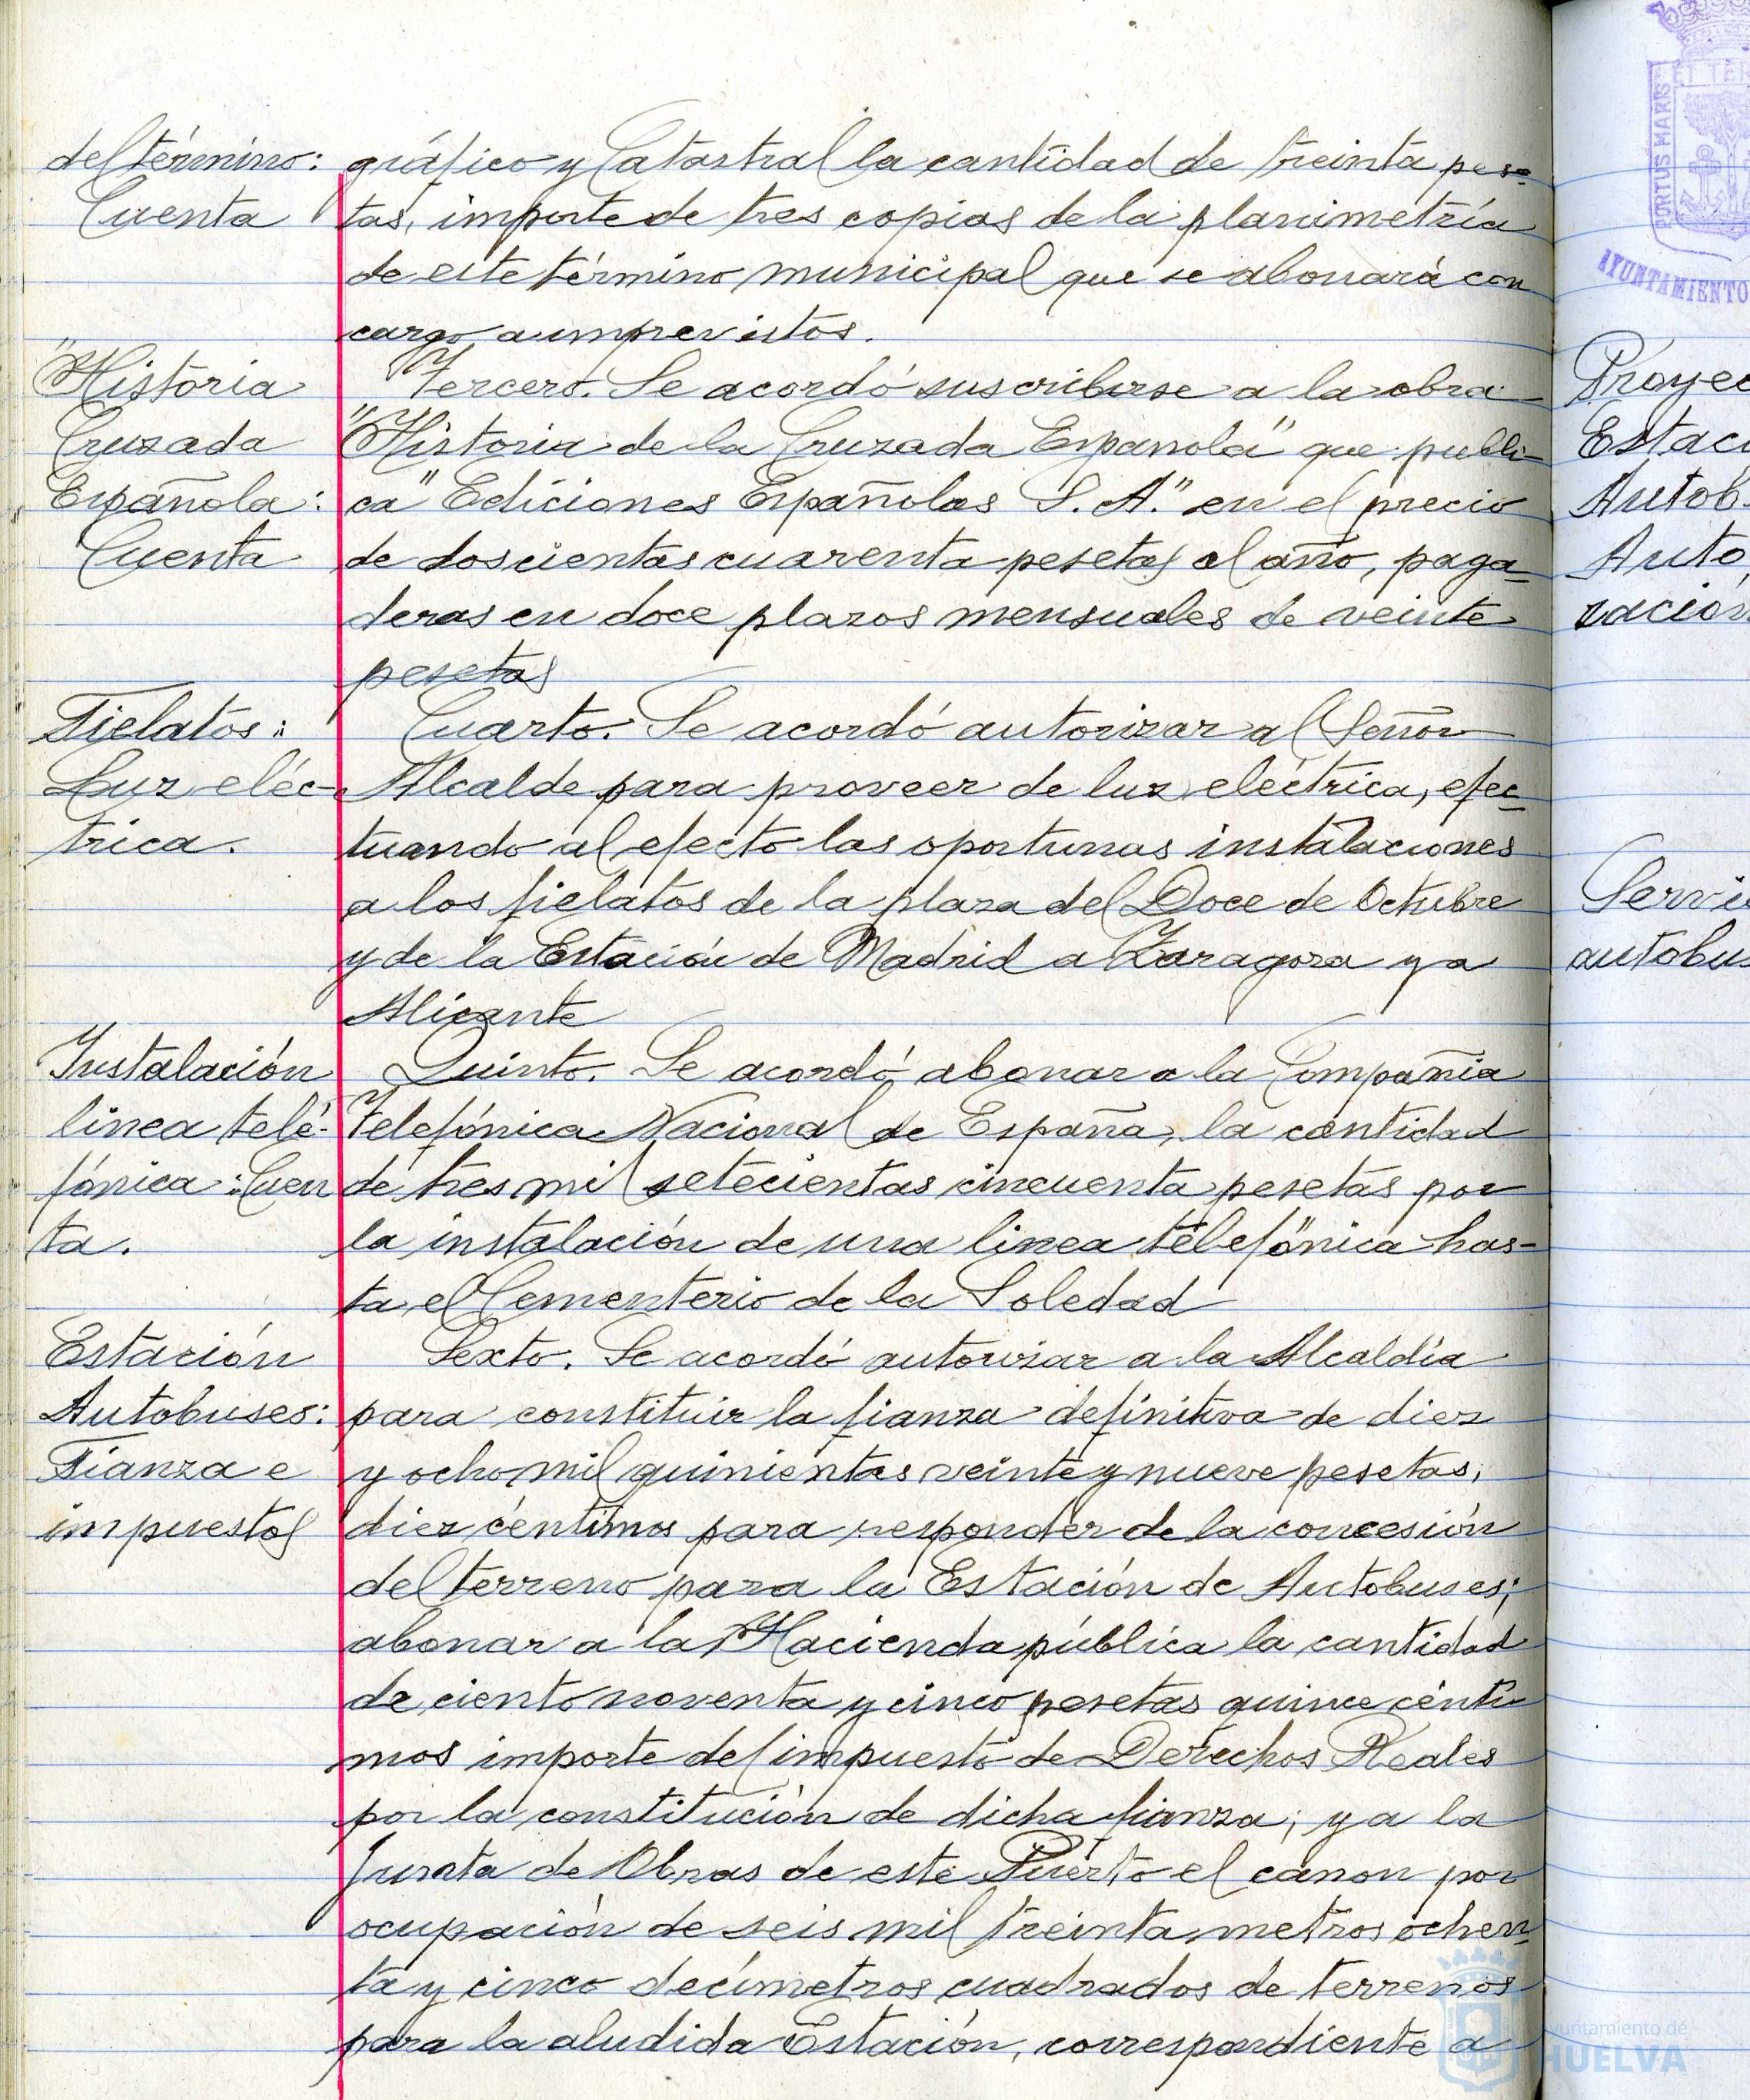 del término: gráfico y Catastral la cantidad de treinta pese-
Cuenta tas, importe de tres copias de la planimetría
de este término municipal que se abonará con
cargo a imprevistos.
"Historia Tercero. Se acordó suscribirse a la obra
Cruzada "Historia de la Cruzada Española" que publi-
Española: ca "Ediciones Españolas S. A." en el precio
Cuenta de doscientas cuarenta pesetas al año, paga-
deras en doce plazos mensuales de veinte
pesetas
Fielatos: Cuarto. Se acordó autorizar al Señor
Luz eléc- Alcalde para proveer de luz eléctrica, efec-
trica. tuando al efecto las oportunas instalaciones
a los fielatos de la plaza del Doce de Octubre
y de la Estación de Madrid a Zaragoza y a
Alicante
Instalación Quinto. Se acordó abonar a la Compañia
linea tele- Telefónica Nacional de España, la cantidad
fónica: Cuen de tres mil setecientas cincuenta pesetas por
ta. la instalación de una linea telefónica has-
ta el Cementerio de la Soledad
Estación Sexto. Se acordó autorizar a la Alcaldía
Autobuses: para constituir la fianza definitiva de diez
Fianza e y ocho mil quinientas veinte y nueve pesetas,
impuestos diez céntimos para responder de la concesión
del terreno para la Estación de Autobuses;
abonar a la Hacienda pública la cantidad
de ciento noventa y cinco pesetas quince cénti-
mos importe del impuesto de Derechos Reales
por la constitución de dicha fianza; y a la
Junta de Obras de este Puerto el canon por
ocupación de seis mil treinta metros ochen-
ta y cinco decímetros cuadrados de terrenos
para la aludida Estación, correspondiente a
PORTUS MARIS ET TER
AYUNTAMIENTO
Proyec
Estaci
Autob.
Auto
zación
Servi
autobus
Ayuntamiento de
HUELVA